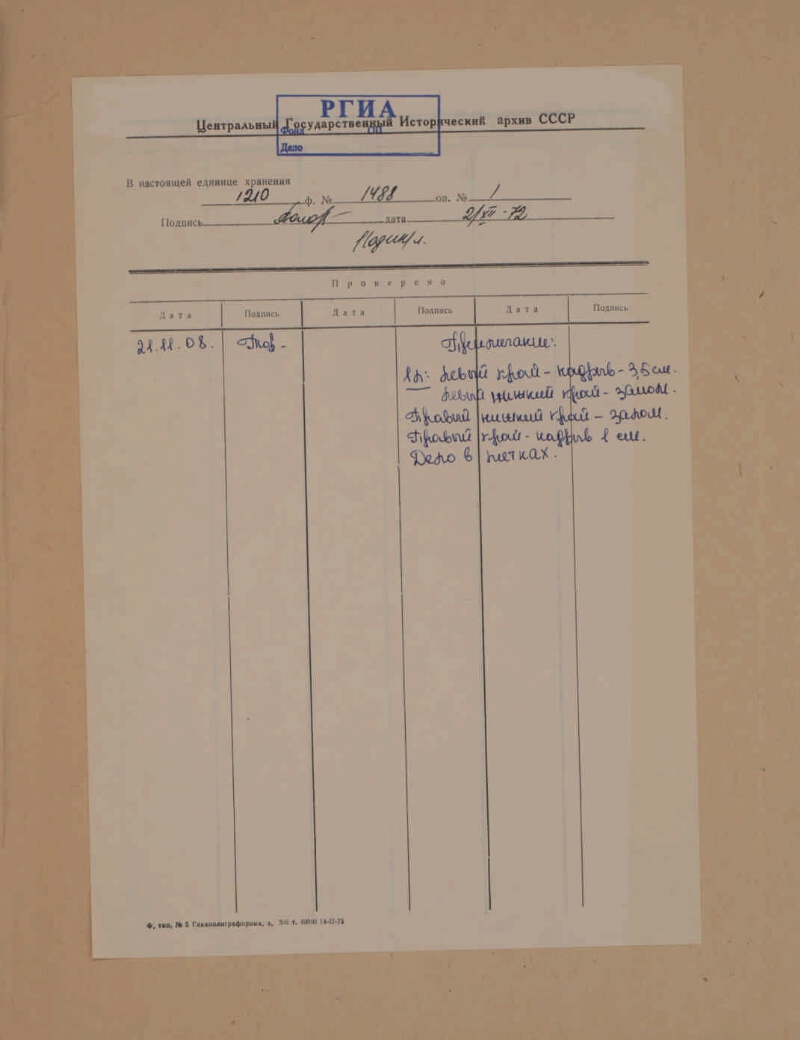 РГИА
Центральный Государственный Исторический архив СССР
Фонд Оп
Дело
В настоящей единице хранения
1210 ф. № 1488 оп. № 1
Подпись дата 2/XII-72
Проверено
Дата Подпись Дата Подпись Дата Подпись
21.11.08. Примечание:
1л: левый край - надрыв - 3,5 см.
левый нижний край - залом.
Правый нижний край - залом.
Правый край - надрыв 1 см.
Дело в пятнах.
Ф. тип. № 5 Главполиграфпрома, з.